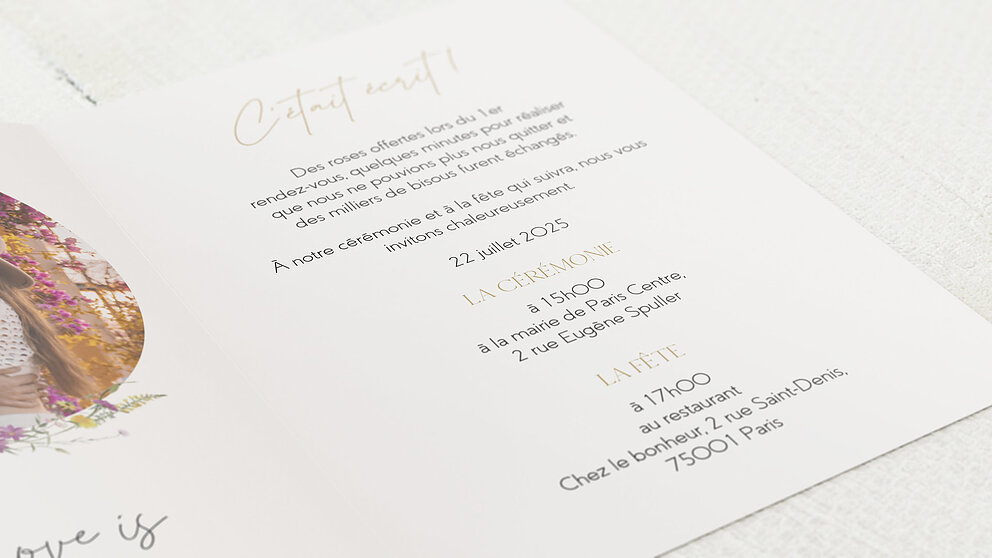 C'était écrit !
Des roses offertes lors du 1er
rendez-vous, quelques minutes pour réaliser
que nous ne pouvions plus nous quitter et
des milliers de bisous furent échangés.
À notre cérémonie et à la fête qui suivra, nous vous
invitons chaleureusement.
22 juillet 2025
LA CÉRÉMONIE
à 15h00
à la mairie de Paris Centre,
2 rue Eugène Spuller
LA FÊTE
à 17h00
au restaurant
Chez le bonheur, 2 rue Saint-Denis,
75001 Paris
ove is